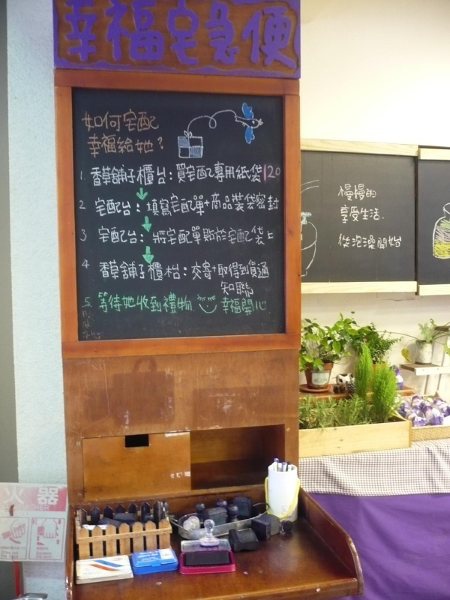 幸福宅急便
如何宅配
幸福給她？
1. 香草舖子櫃台：買宅配專用紙袋120
2 宅配台：填寫宅配單+商品裝袋密封
3 宅配台：將宅配單貼於宅配袋上
4 香草舖子櫃枱：交寄+取得到貨通
知聯
5. 等待她收到禮物 幸福開心
慢慢的
享受生活.
從泡澡開始
火器